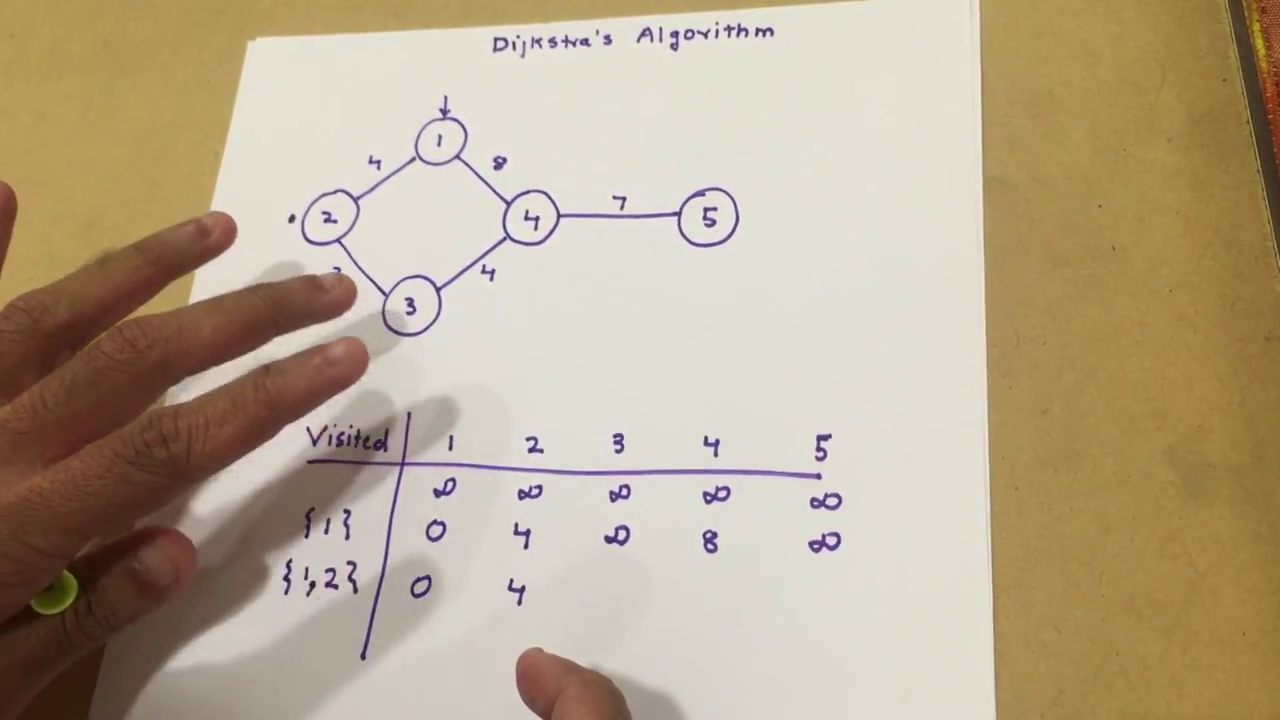 Dijkstra's Algorithm
1
4 8
2 4 7 5
4
3
Visited 1 2 3 4 5
∞ ∞ ∞ ∞ ∞
{1} 0 4 ∞ 8 ∞
{1,2} 0 4